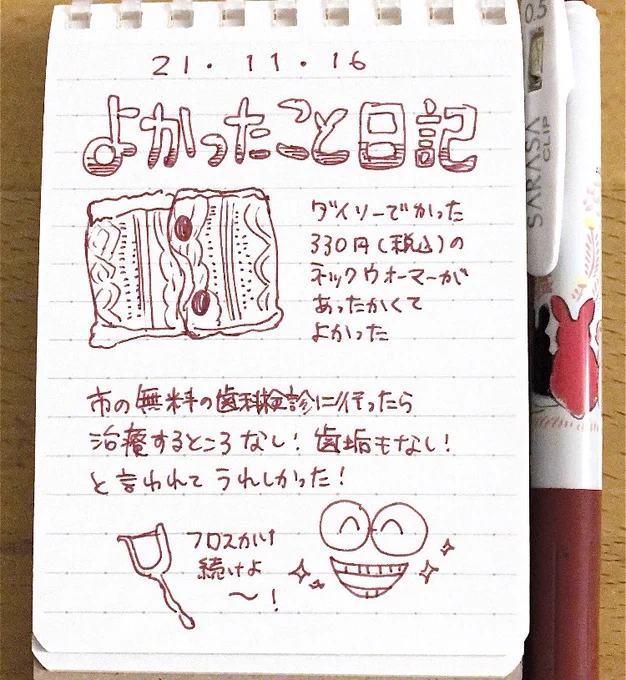 21・11・16
よかったこと日記
ダイソーでかった
330円(税込)の
ネックウォーマーが
あったかくて
よかった
市の無料の歯科検診に行ったら
治療するところなし! 歯垢もなし!
と言われてうれしかった!
フロスかけ
続けよ
〜!
0.5
SARASA
CLIP